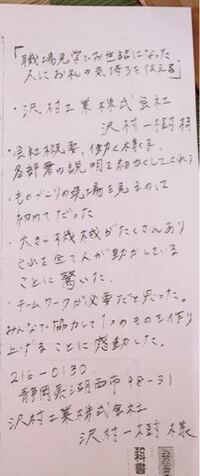 「職場見学でお世話になった
人にお礼の気持ちを伝える」
・沢村工業株式会社
沢村一樹様
・会社概要、働く様子、
各部署の説明を細かくしてくれた
・ものづくりの現場を見るのは
初めてだった。
大きい機械がたくさんあり
それを全て人が動かしている
ことに驚いた。
・チームワークが必要だと思った。
みんなで協力して1つのものを作り
上げることに感動した。
216-0130
静岡県湖西市38-31
沢村工業株式会社
沢村一樹様
科書